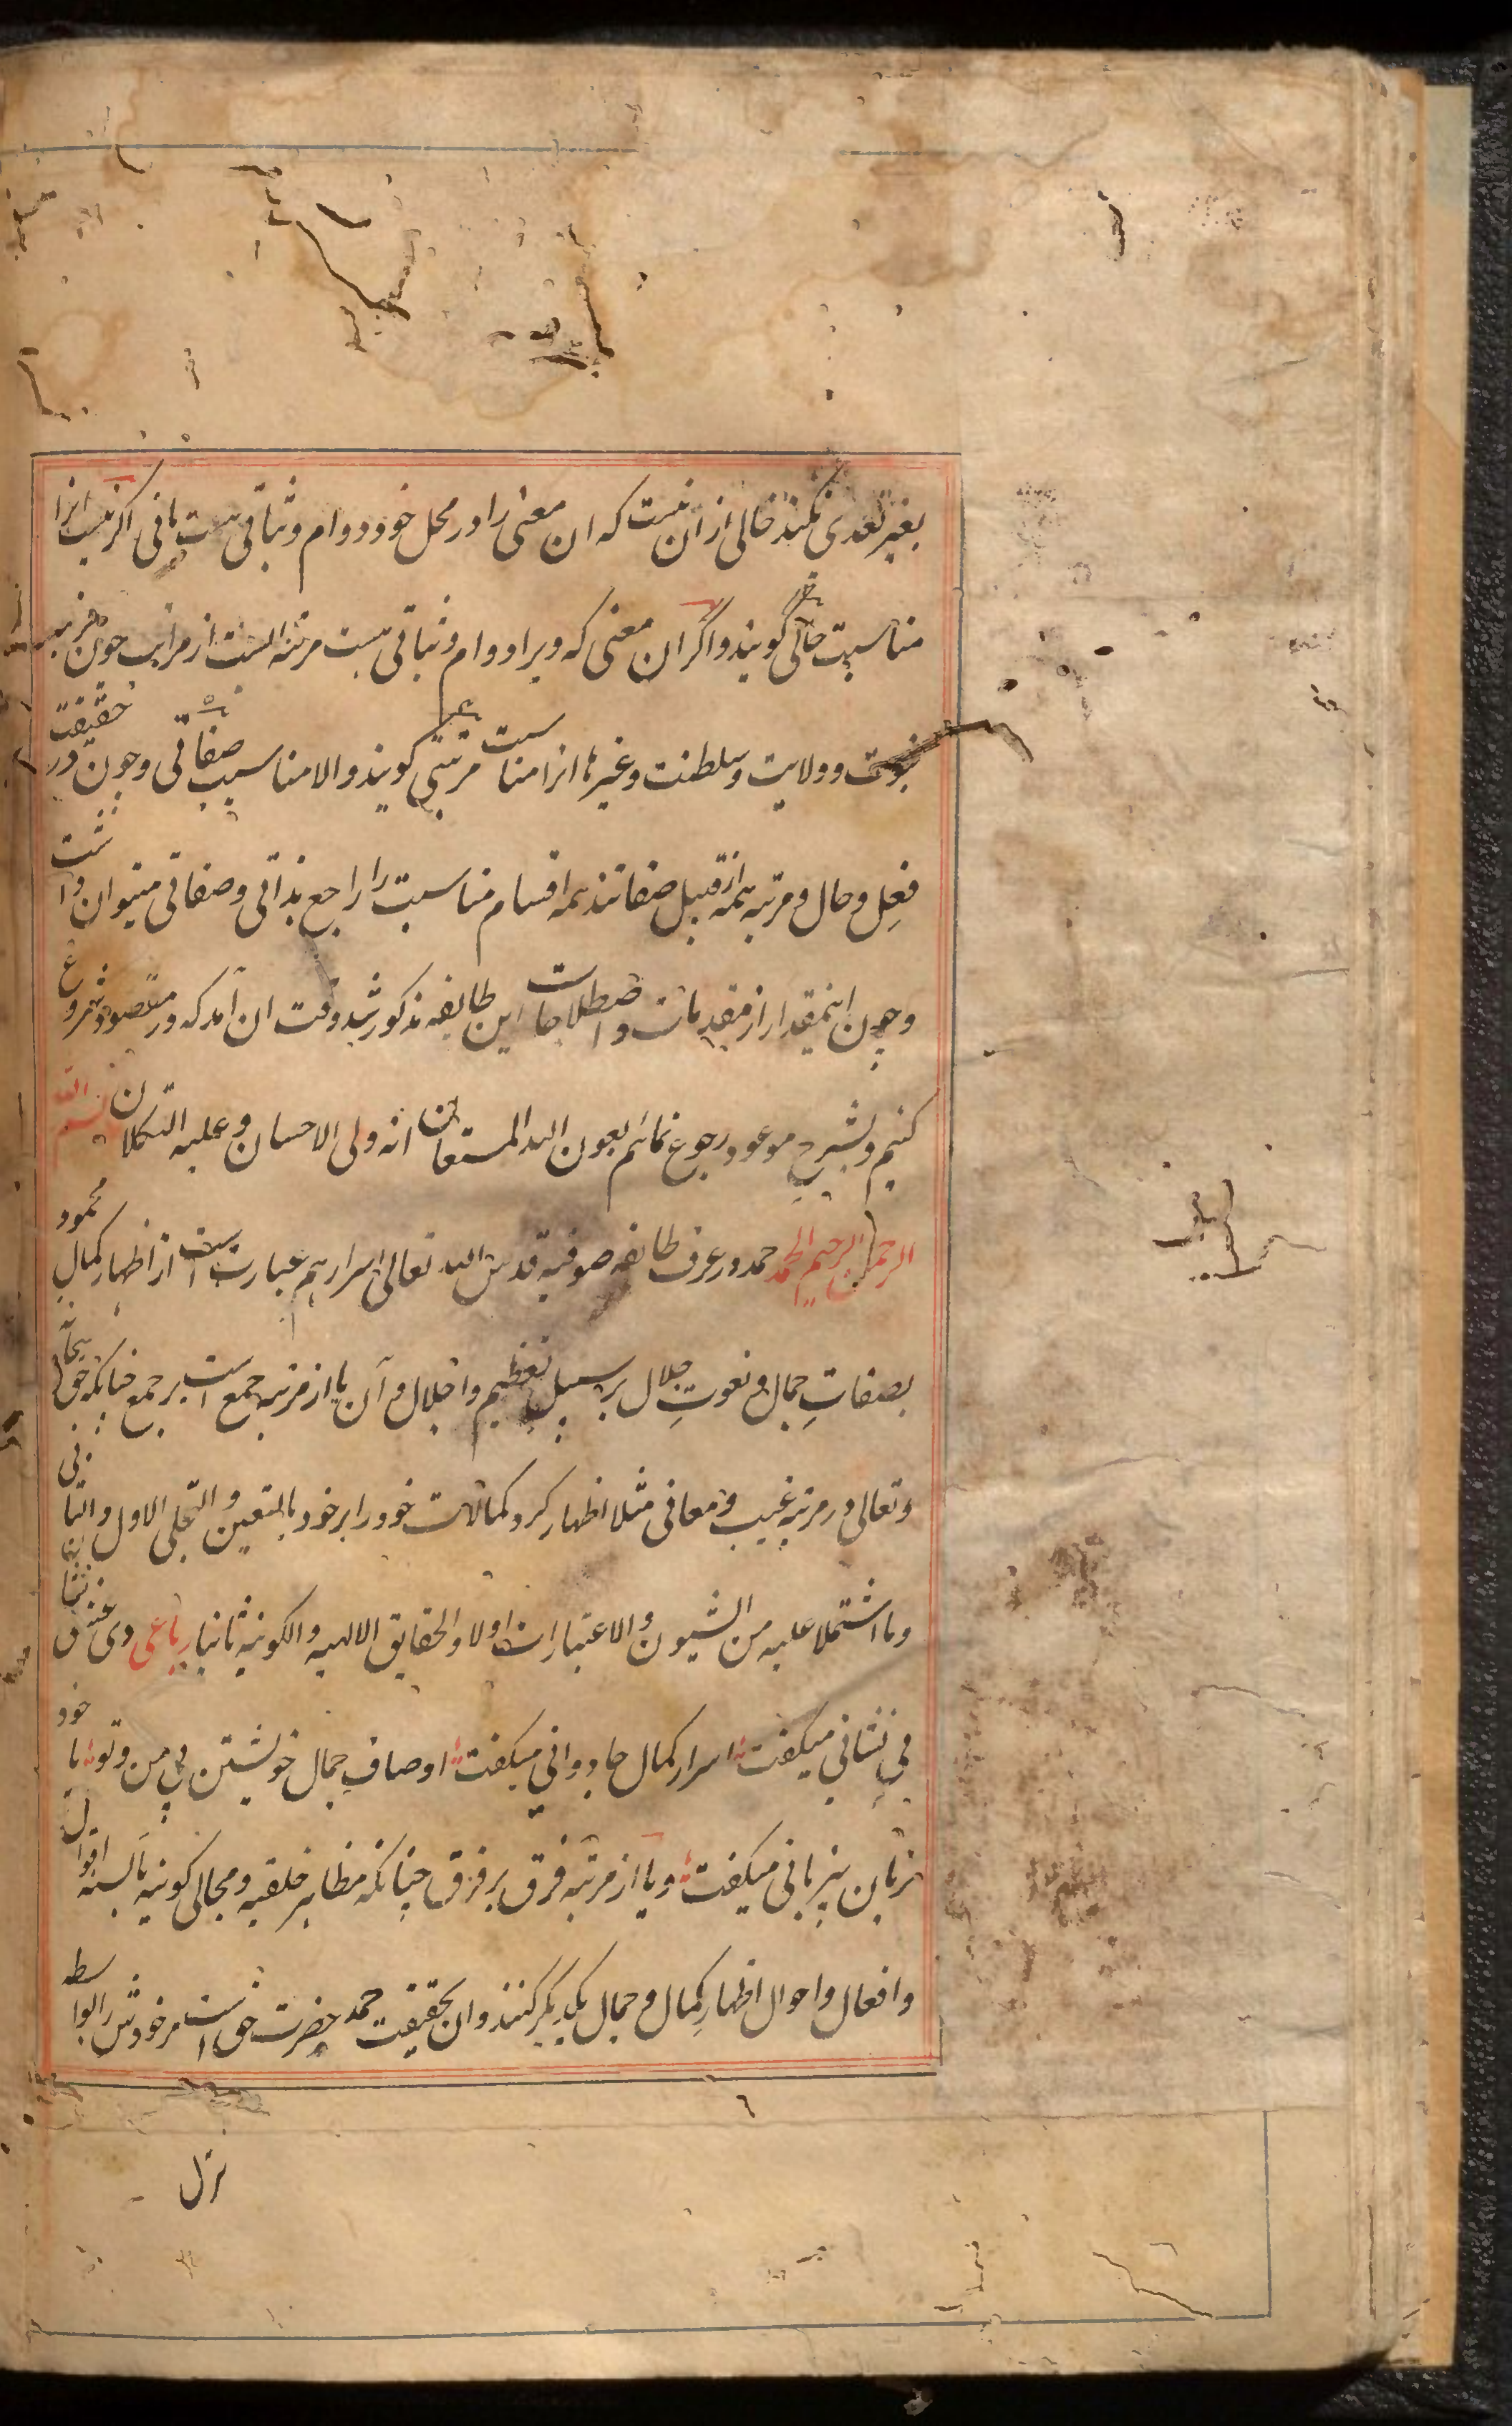 بغیر تعدی نکند خالی از آن نیست که ان معنی را در محل خود دوام و ثباتی هست یا نی اگر نیست انرا
مناسبت حالی گویند و اگر ان معنی که ویرا دوام و ثباتی هست مرتبه الست از مراتب چون مرتبه
نبوت و ولایت و سلطنت و غیرها انرا مناسبت مرتبتی گویند والا مناسبت صفاتی و چون در حقیقت
فعل و حال و مرتبه همه از قبیل صفاتند همه اقسام مناسبت را راجع بذاتی و صفاتی میتوان داشت
و چون اینمقدار از مقدمات و اصطلاحات این طایفه مذکور شد وقت ان آمد که در مقصود شروع
کنیم و بشرح موعود رجوع نمائیم بعون الله المستعان انه ولی الاحسان و علیه التکلان بسم الله
الرحمن الرحیم الحمد حمد در عرف طایفه صوفیه قدس الله تعالی اسرارهم عبارتست از اظهار کمال محمود
بصفاتِ جمال و نعوتِ جلال بر سبیل تعظیم و اجلال و آن یا از مرتبه جمع است بر جمع چنانکه حق سبحانه
و تعالی در مرتبه غیب و معانی مثلا اظهار کرد کمالات خود را بر خود بالتعین و التجلی الاول و الثانی
و ما اشتملا علیه من الشیون و الاعتبارات اولا و الحقایق الالهیه و الکونیه ثانیا رباعی دی عشق نشان
بی نشانی میگفت اسرار کمال جاودانی میگفت اوصاف جمال خویشتن بی من و تو با خود
بزبان بیزبانی میگفت و یا از مرتبه فرق بر فرق چنانکه مظاهر خلقیه و مجالی کونیه بالسنه اقوال
و افعال و احوال اظهارِ کمال و جمال یکدیگر کنند و ان بحقیقت حمد حضرت حق است مر خودش را بواسطه
٦
نزل